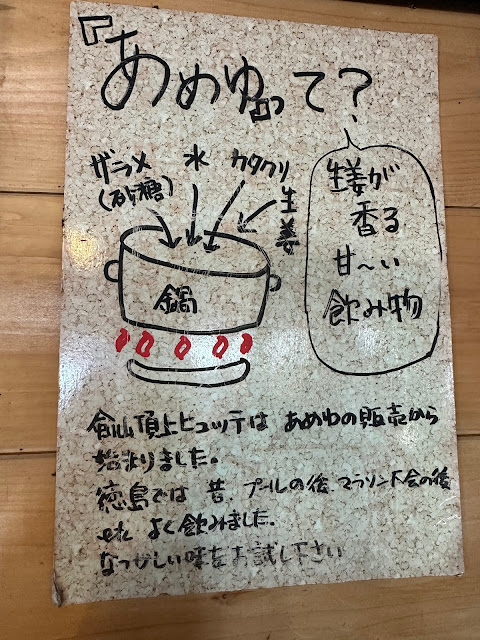 『あめゆ』って?
ザラメ
(砂糖)
水
カタクリ
生姜
鍋
生姜が
香る
甘〜い
飲み物
剣山頂上ヒュッテは あめゆの販売から
始まりました。
徳島では 昔、プールの後、マラソン大会の後
よく飲みました。
なつかしい味をお試し下さい